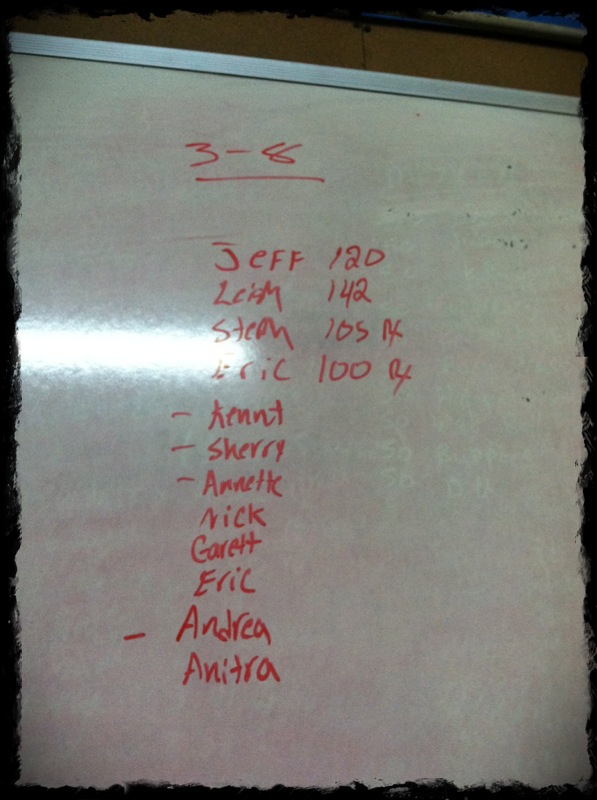 3-8
Jeff 120
Leigh 142
Steph 105 Rx
Eric 100 Rx
- Kenny
- Sherry
- Annette
Nick
Garett
Eric
- Andrea
Anitra